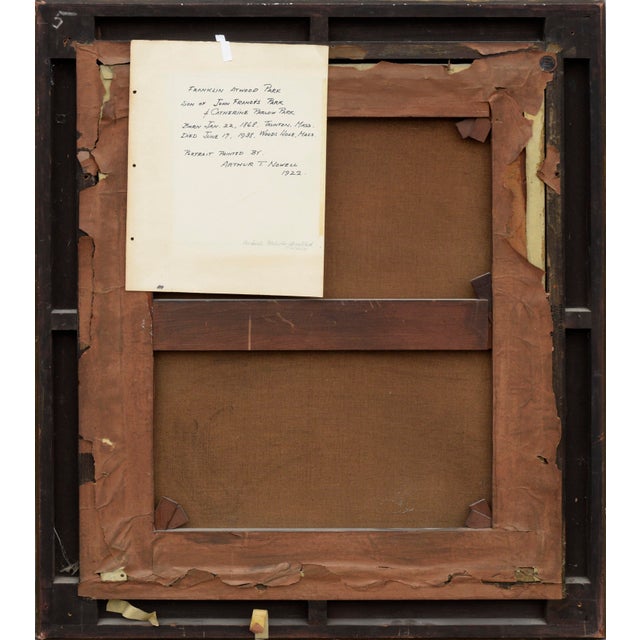 5
FRANKLIN ATWOOD PARK
SON OF JOHN FRANCES PARK
& CATHERINE PARLOW PARK
BORN JAN. 22, 1868, TAUNTON, MASS.
DIED JUNE 17, 1938, WOODS HOLE, MASS.
PORTRAIT PAINTED BY
ARTHUR T. NOWELL
1922.